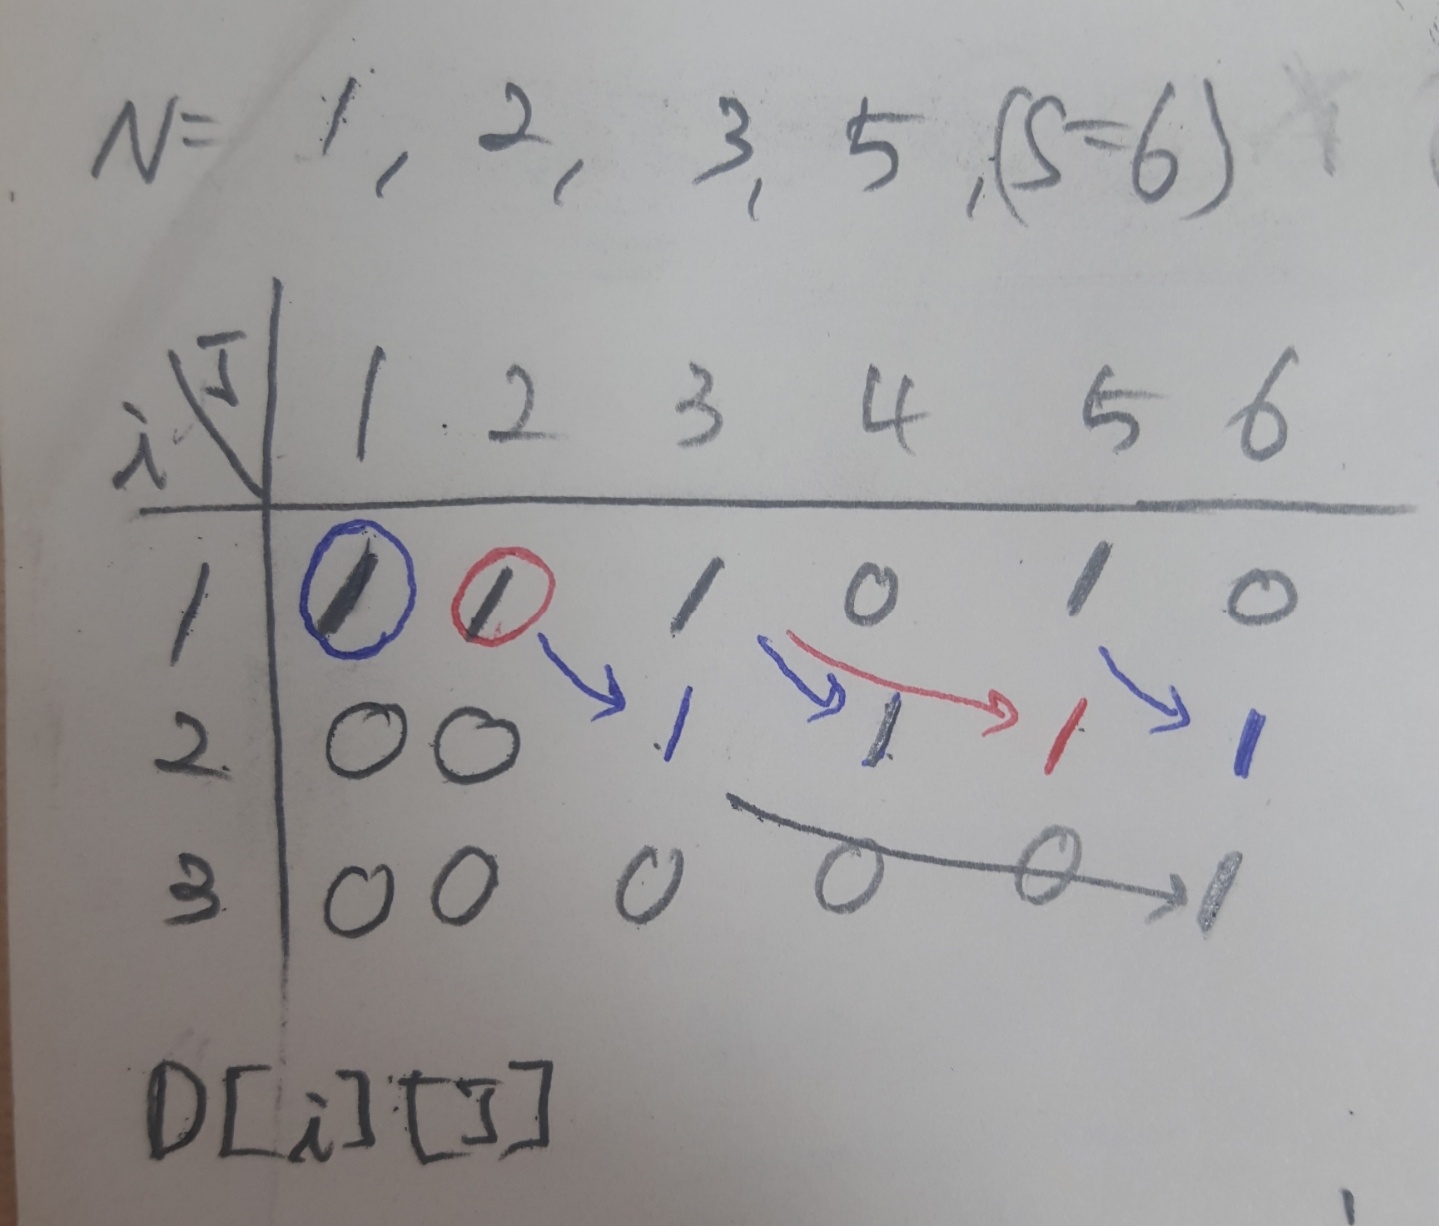 N= 1, 2, 3, 5, (S=6)
i\J 1 2 3 4 5 6
1 1 1 1 0 1 0
2 0 0 1 1 1 1
3 0 0 0 0 0 1
D[i][J]